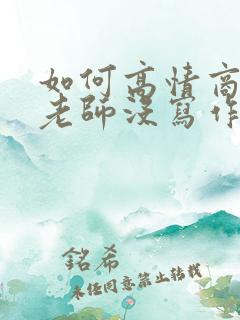 如何高情商
老師沒寫作
銘希
未經同意禁止轉載